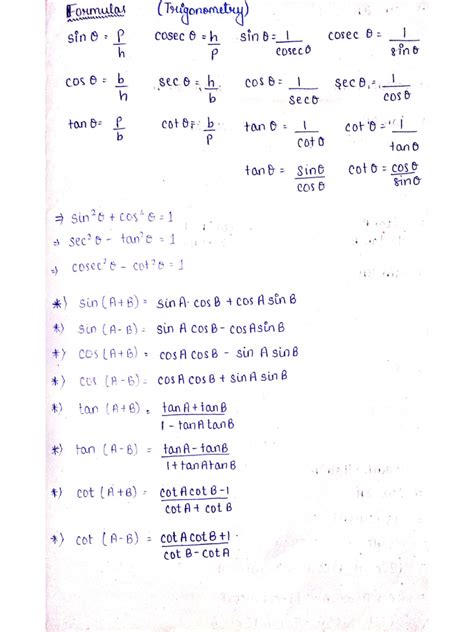 Formulas (Trigonometry)
sin θ = p/h cosec θ = h/p sin θ = 1/cosec θ cosec θ = 1/sin θ
cos θ = b/h sec θ = h/b cos θ = 1/sec θ sec θ = 1/cos θ
tan θ = p/b cot θ = b/p tan θ = 1/cot θ cot θ = 1/tan θ
tan θ = sin θ/cos θ cot θ = cos θ/sin θ
⇒ sin²θ + cos²θ = 1
⇒ sec²θ - tan²θ = 1
⇒ cosec²θ - cot²θ = 1
*) sin (A+B) = sin A· cos B + cos A sin B
*) sin (A-B) = sin A cos B - cos A sin B
*) cos (A+B) = cos A cos B - sin A sin B
*) cos (A-B) = cos A cos B + sin A sin B
*) tan (A+B) = tan A + tan B / 1 - tan A tan B
*) tan (A-B) = tan A - tan B / 1 + tan A tan B
*) cot (A+B) = cot A cot B - 1 / cot A + cot B
*) cot (A-B) = cot A cot B + 1 / cot B - cot A